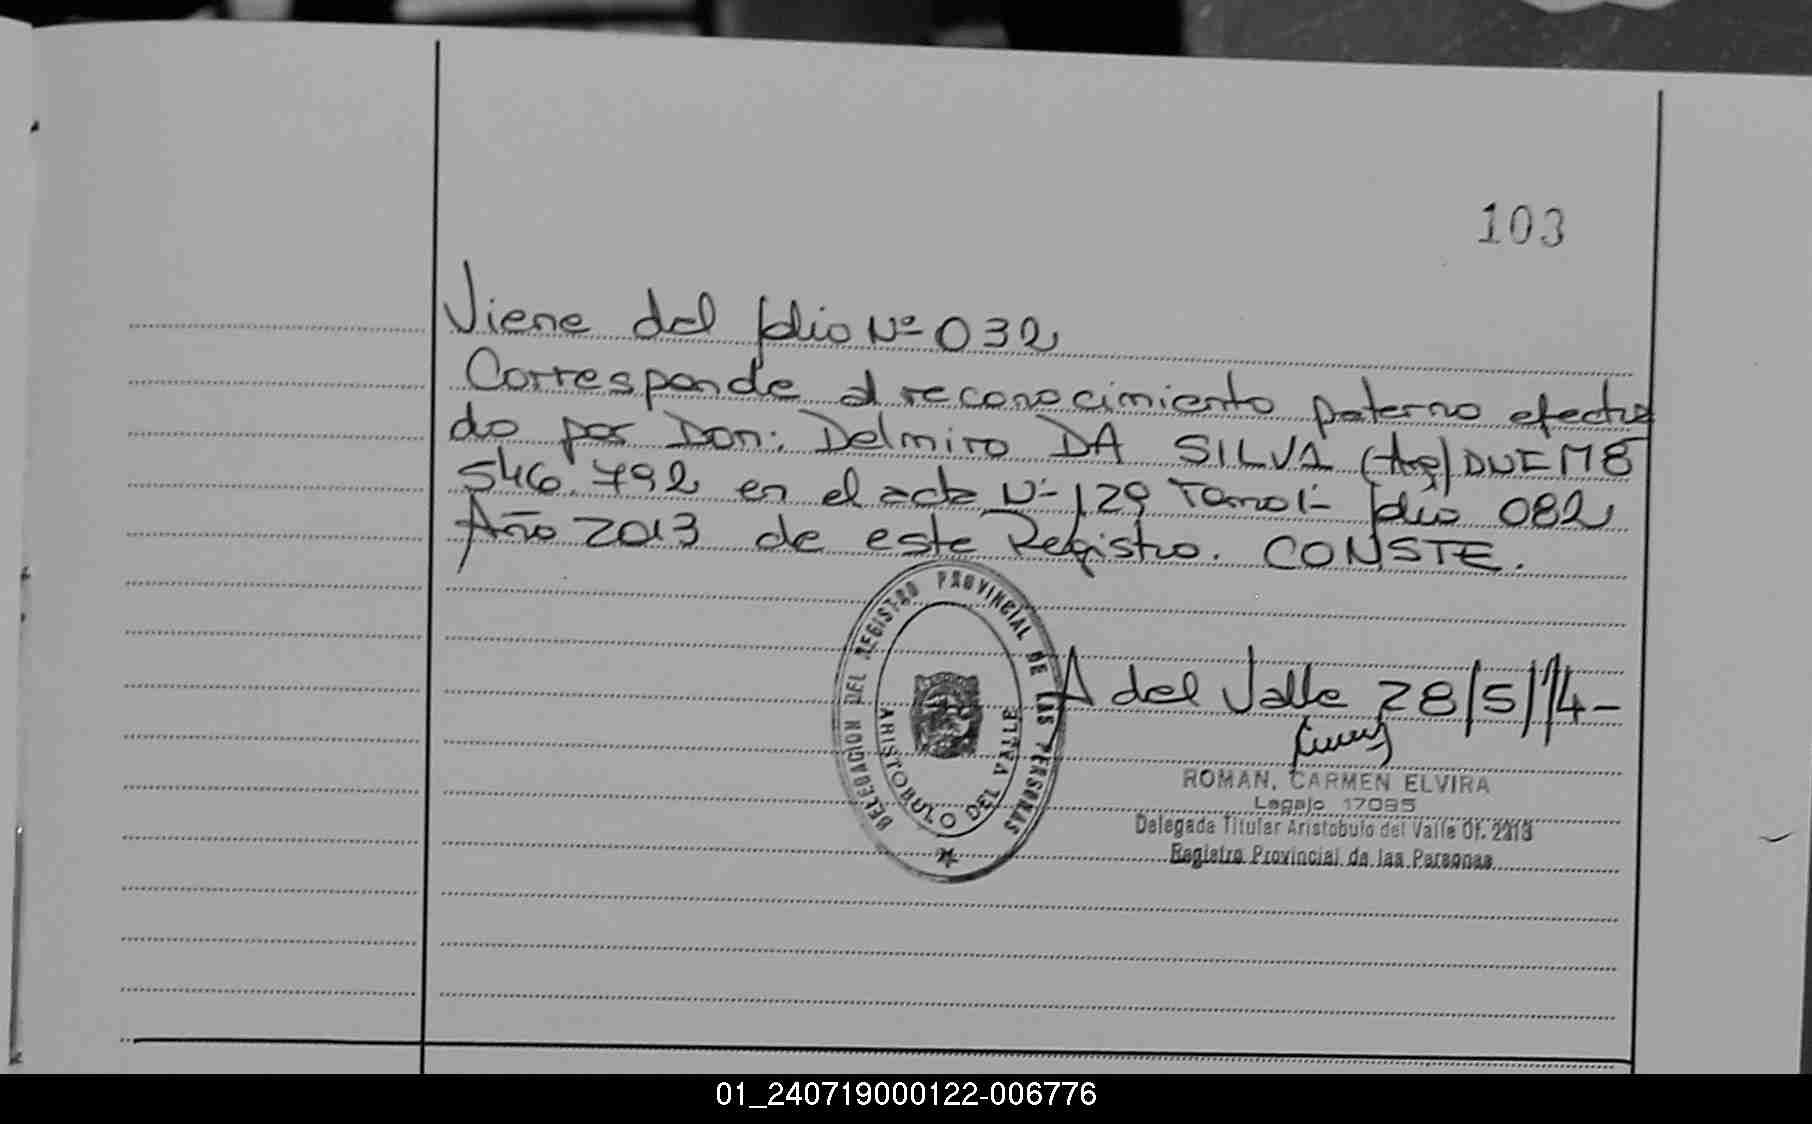 103
Viene del folio Nº 032
Corresponde al reconocimiento paterno efectua
do por Don: Delmiro DA SILVA (Arg) DNI M8
546.792 en el acta Nº 129 Tomo 1º folio 082
Año 2013 de este Registro. CONSTE.
DELEGACION DEL REGISTRO PROVINCIAL DE LAS PERSONAS
ARISTOBULO DEL VALLE
A del Valle 28/5/14-
ROMAN, CARMEN ELVIRA
Legajo 17085
Delegada Titular Aristobulo del Valle Of. 2213
Registro Provincial de las Personas
01_240719000122-006776